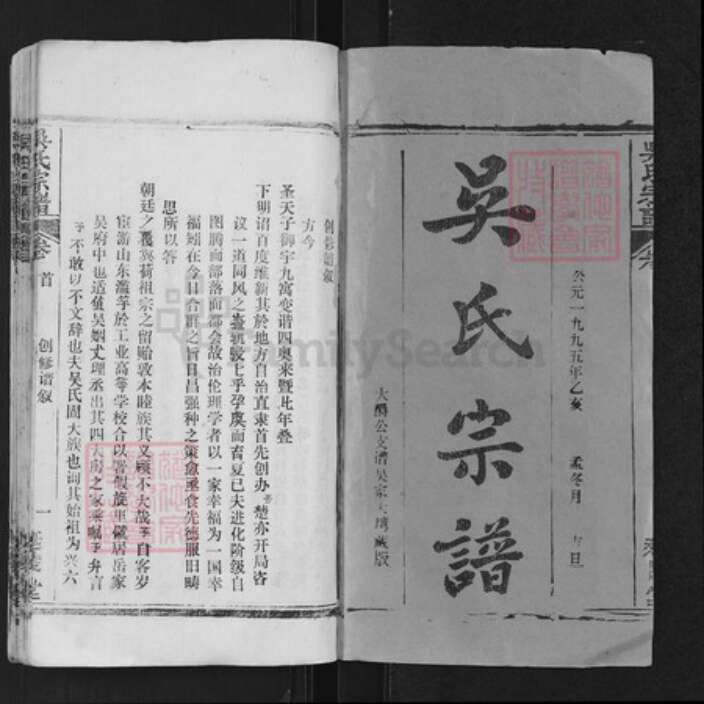 公元一九九五年乙亥 孟冬月 吉旦
吳氏宗譜
大公支谱吴家大湾藏版
吳氏宗譜
卷首
创修谱叙
一
创修谱叙
方今
圣天子御宇九寓变谐四奥来暨比年叠
下明诏百度维新其於地方自治直隶首先创办吾楚亦开局咨
议一道同风之轨骎骎上乎孕虞而育夏已夫进化阶级自
图腾而部落而都会故治伦理学者以一家幸福为一国幸
福矧在今日合群之旨日昌强种之策愈重食先德服旧畴
思所以答
朝廷之覆冀荷祖宗之留贻敦本睦族其义顾不大哉予自客岁
宦游山东滥竽於工业高等学校合以署假旋里僦居岳家
吴府中也适值吴姻丈理丞出其四大房之家乘嘱予弁言
予不敢以不文辞也夫吴氏固大族也询其始祖为兴六
FamilySearch